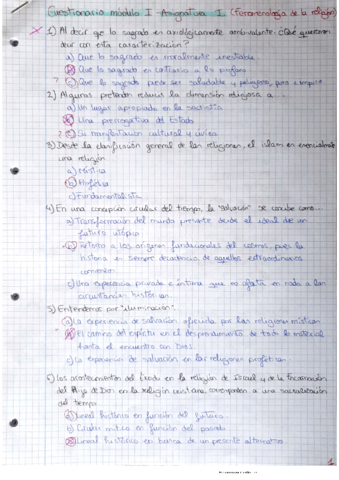 Cuestionario módulo I - Asignatura I (Fenomenología de la religión)
1) Al decir que lo sagrado es axiológicamente ambivalente. ¿Qué queremos
decir con esta caracterización?
a) Que lo sagrado es moralmente inestable
b) Que lo sagrado es contrario a lo profano
c) Que lo sagrado puede ser saludable y peligroso, para siempre
2) Algunos pretenden reducir la dimensión religiosa a ...
a) Un lugar apropiado en la sacristía
b) Una prerrogativa del Estado
c) Su manifestación cultural y cívica
3) Desde la clasificación general de las religiones, el islam es esencialmente
una religión
a) Mística
b) Profética
c) Fundamentalista
4) En una concepción circular del tiempo, la "salvación" se concibe como...
a) Transformación del mundo presente desde el ideal de un
futuro utópico
b) Retorno a los orígenes fundacionales del cosmos, pues la
historia es siempre decadencia de aquellos extraordinarios
comienzos
c) Una experiencia privada e íntima que no afecta en nada a las
circunstancias históricas.
5) Entendemos por "iluminación":
a) La experiencia de salvación ofrecida por las religiones místicas
b) El camino del espíritu en el desprendimiento de todo lo material
hasta el encuentro con Dios.
c) La experiencia de salvación en las religiones proféticas.
6) Los acontecimientos del Éxodo en la religión de Israel y de la Encarnación
del Hijo de Dios en la religión cristiana, corresponden a una sacralización
del tiempo
a) Lineal histórico en función del futuro.
b) Circular mítico en función del pasado.
c) Lineal histórico en busca de un presente alternativo.
1